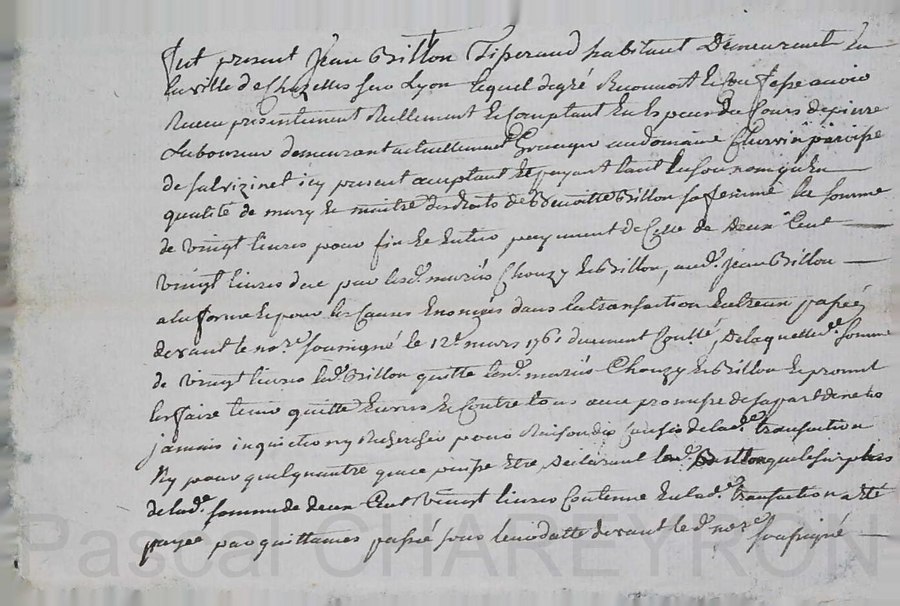 fut present Jean Brillon Tiserand habitant Demeurant En
la ville de Chazelles sur Lyon lequel de gré Reconnoit et Confesse avoir
Receu presentement Reellement et Comptant En Espece du Cours de pierre
Laboureur demeurant actuellement Granger au domaine paroisse
de Salvizinet icy present acceptant et payant tant En Son nom qu'En
qualité de mary et maitre des droits de Benoitte Brillon sa femme la Somme
de vingt livres pour fin et Entier payement de Celle de Deux Cent
vingt livres deue par lesd. mariés Chouzy et Brillon, aud. Jean Brillon
a la forme et pour les Causes Enoncées dans la transaction Entre eux passée
devant le nore. Soussigné le 12e. mars 1761 duement Conllé, De laquelle de. Somme
de vingt livres led. Brillon quitte lesd. mariés Chouzy et Brillon et promet
les faire tenir quitte Envers et Contre tous avec promesse de sa part de ne
jamais inquieter ny Rechercher pour Raison du Confié de lad. transaction
Ny pour quelqu'autre que ce puisse Etre Declarant led. Brillon que le surplus
de lad. Somme de deux Cent vingt livres Contenue En lad. transaction a Eté
payée par quittances passée sous leur datte devant le d. nore. soussigné
Pascal CHAREYRON